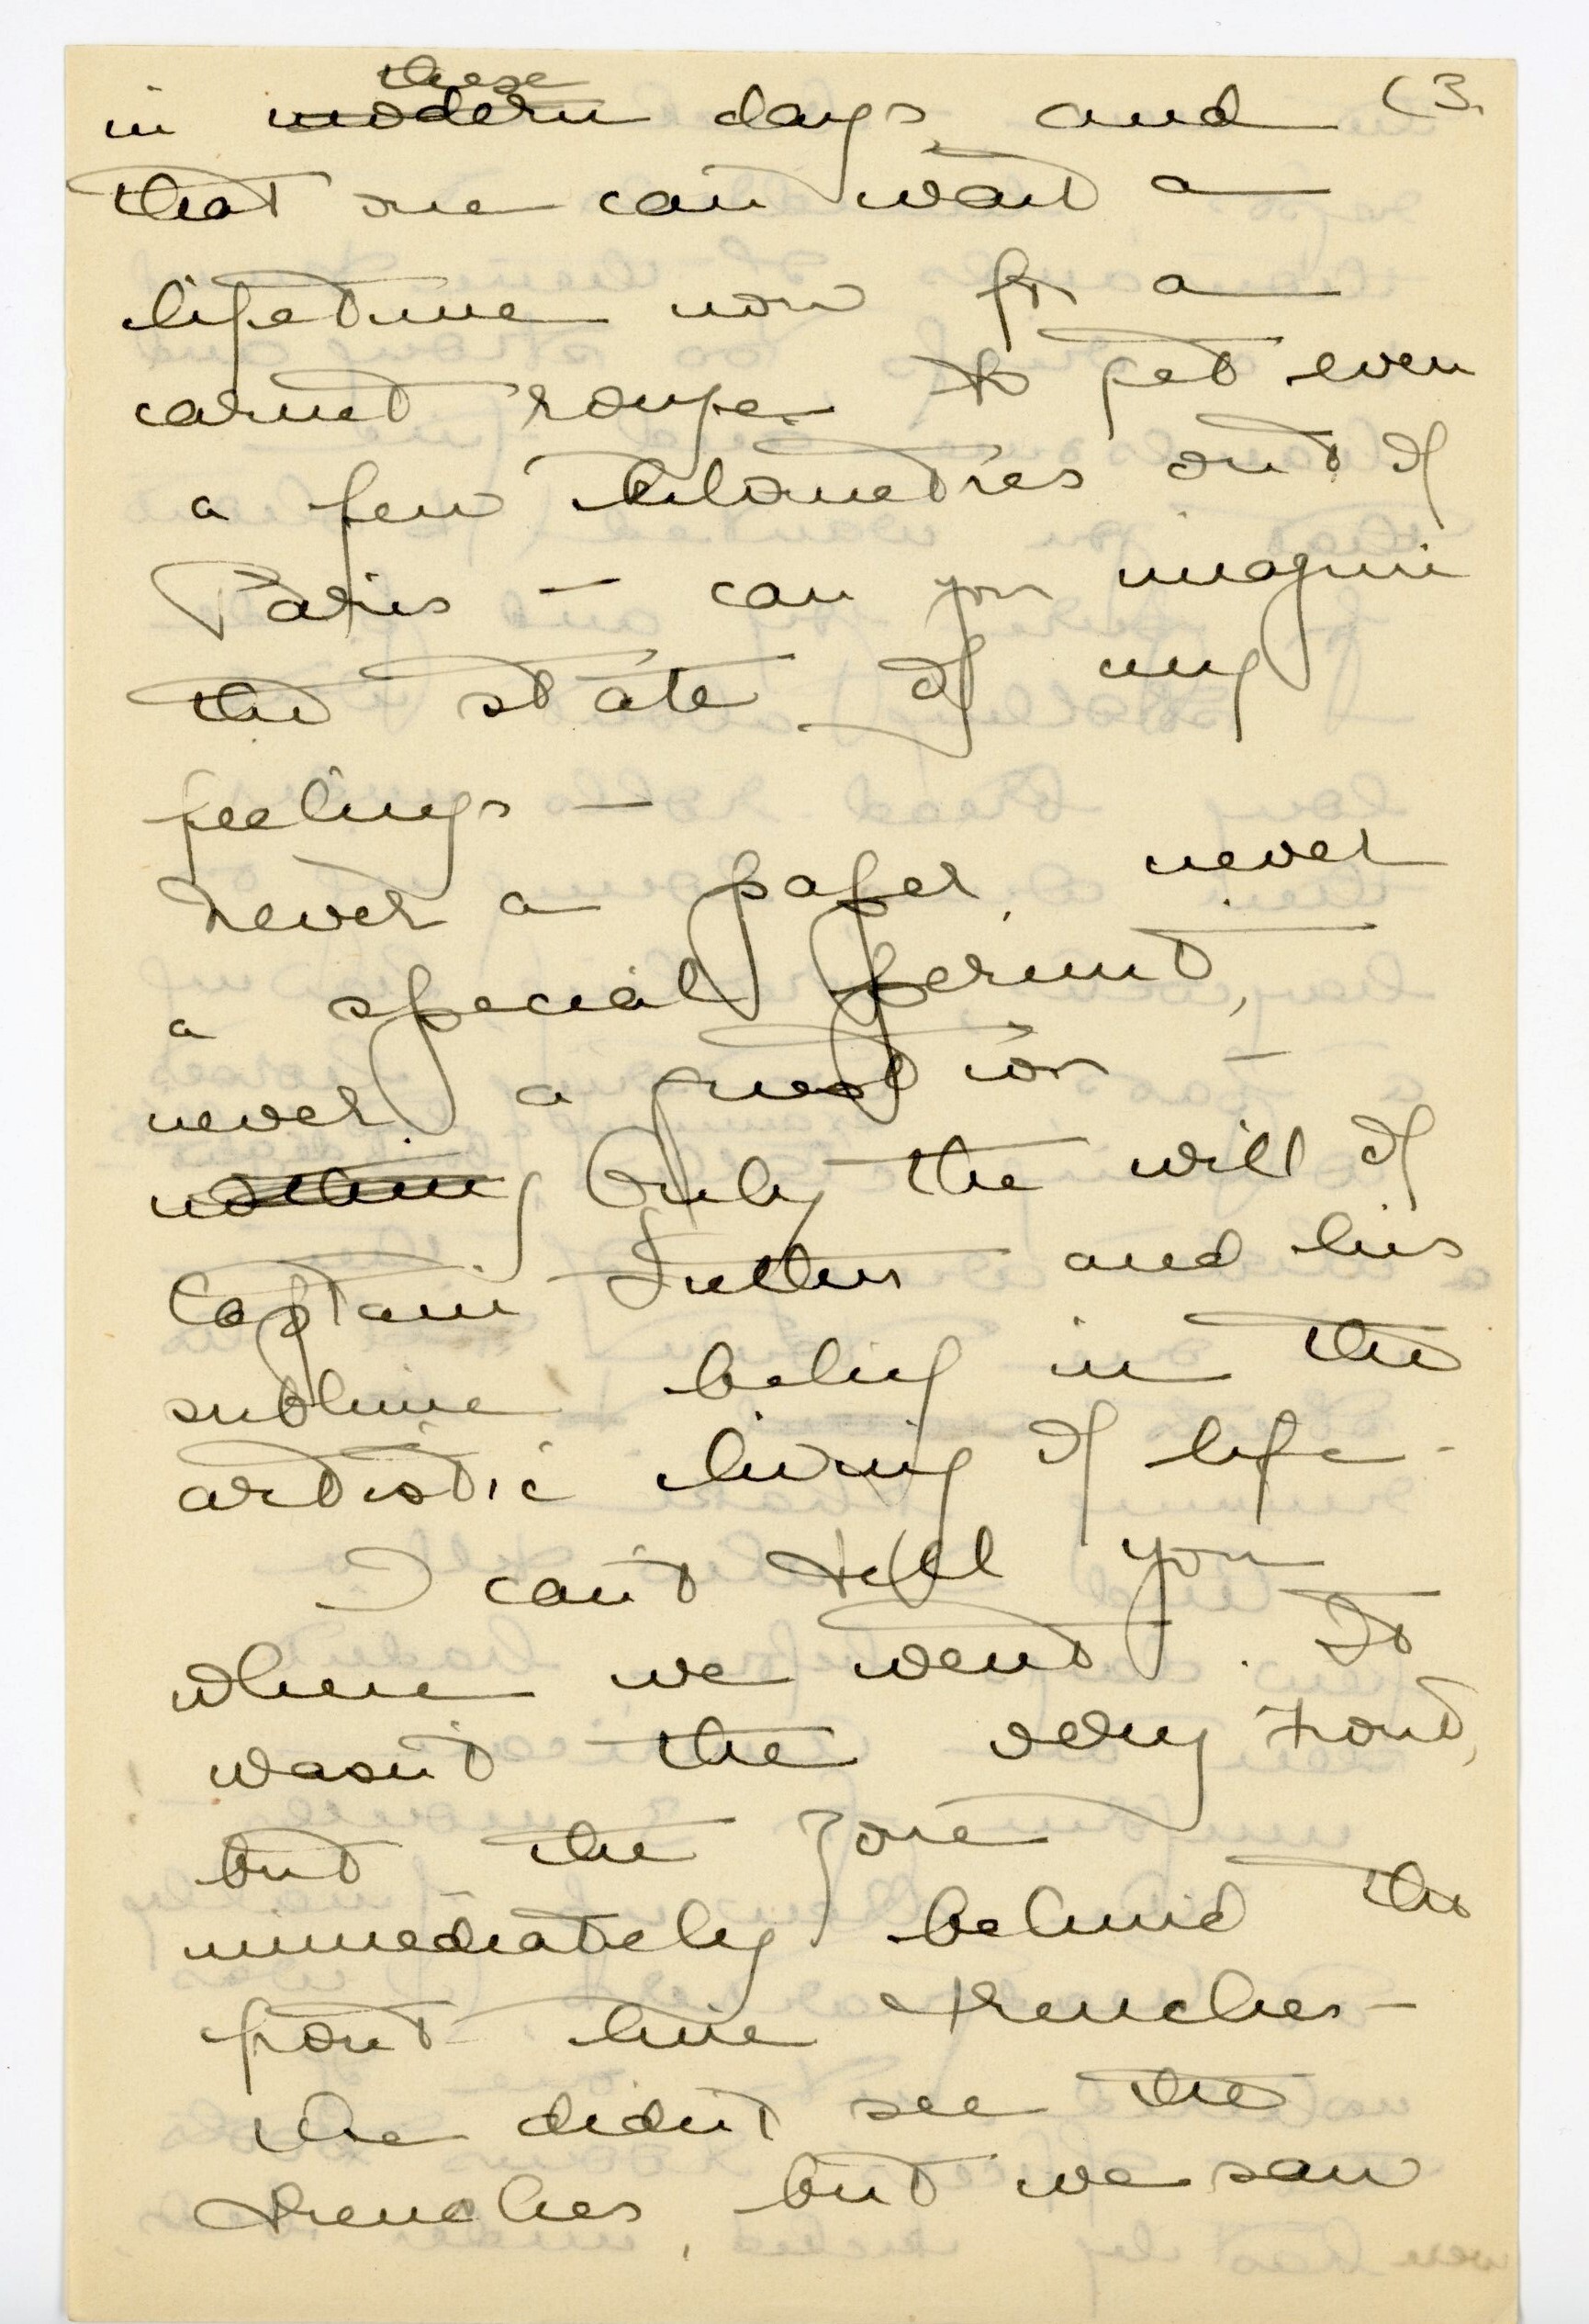 (3.
these
in modern days, and
that one can wait a
lifetime now for a
carnet rouge to get even
a few kilometres out of
Paris — can you imagine
the state of my
feelings —
Never a paper, never
a special permit,
never a question —
nothing Only the will of
Captain and his
sublime belief in the
artistic living of life.
I can't tell you
where we went. It
wasn't the very front,
but the zone
immediately behind the
front line trenches —
We didn't see the
trenches, but we saw